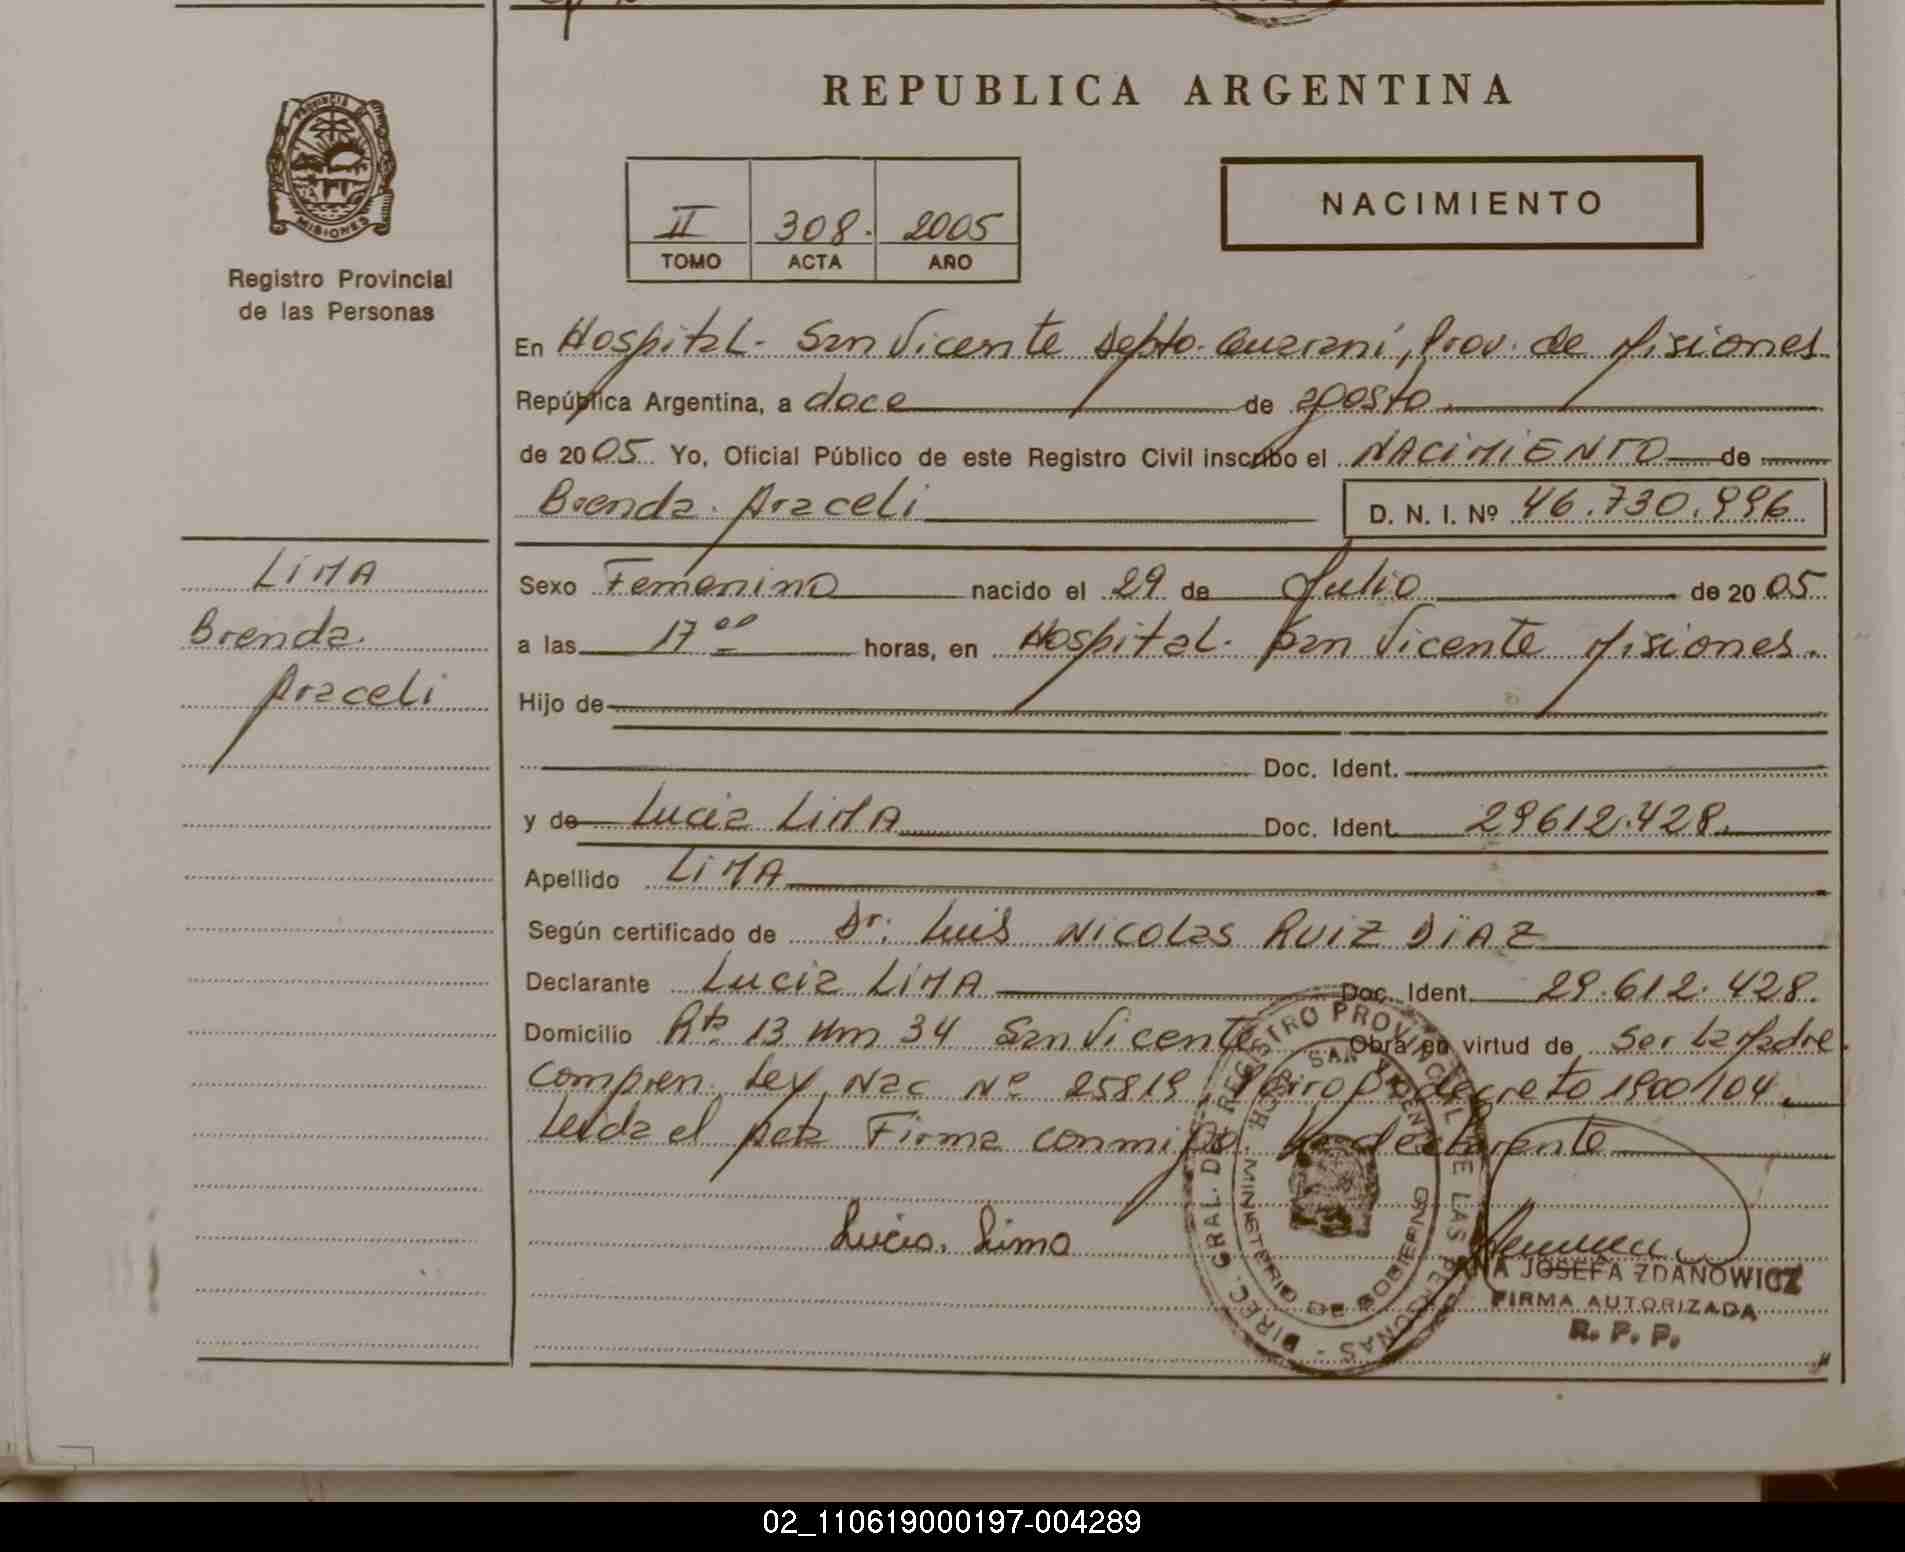 REPUBLICA ARGENTINA
PROVINCIA DE MISIONES
Registro Provincial
de las Personas
NACIMIENTO
II 308. 2005
TOMO ACTA AÑO
En Hospital- San Vicente Depto. Guaraní, Prov. de Misiones
República Argentina, a doce de agosto.
de 2005 Yo, Oficial Público de este Registro Civil inscribo el NACIMIENTO de
Brenda Araceli D. N. I. Nº 46.730.996
LIMA
Brenda
Araceli
Sexo Femenino nacido el 29 de Julio de 2005
a las 17 00 horas, en Hospital- San Vicente Misiones.
Hijo de
Doc. Ident.
y de Lucia LIMA Doc. Ident. 29612.428.
Apellido LIMA
Según certificado de Dr. Luis Nicolas RUIZ DIAZ
Declarante Lucia LIMA Doc. Ident. 29.612.428.
Domicilio Rta. 13 Km 34 San Vicente Obra en virtud de Ser la Madre.
Compren. Ley Nac Nº 25819 decreto 1900/04.
Leida el acta Firma conmigo La declarante
Lucia. Lima
DIREC. GRAL. DEL REGISTRO PROVINCIAL DE LAS PERSONAS
HOSP. SAN VICENTE
MINISTERIO DE GOBIERNO
ANA JOSEFA ZDANOWICZ
FIRMA AUTORIZADA
R. P. P.
02_110619000197-004289